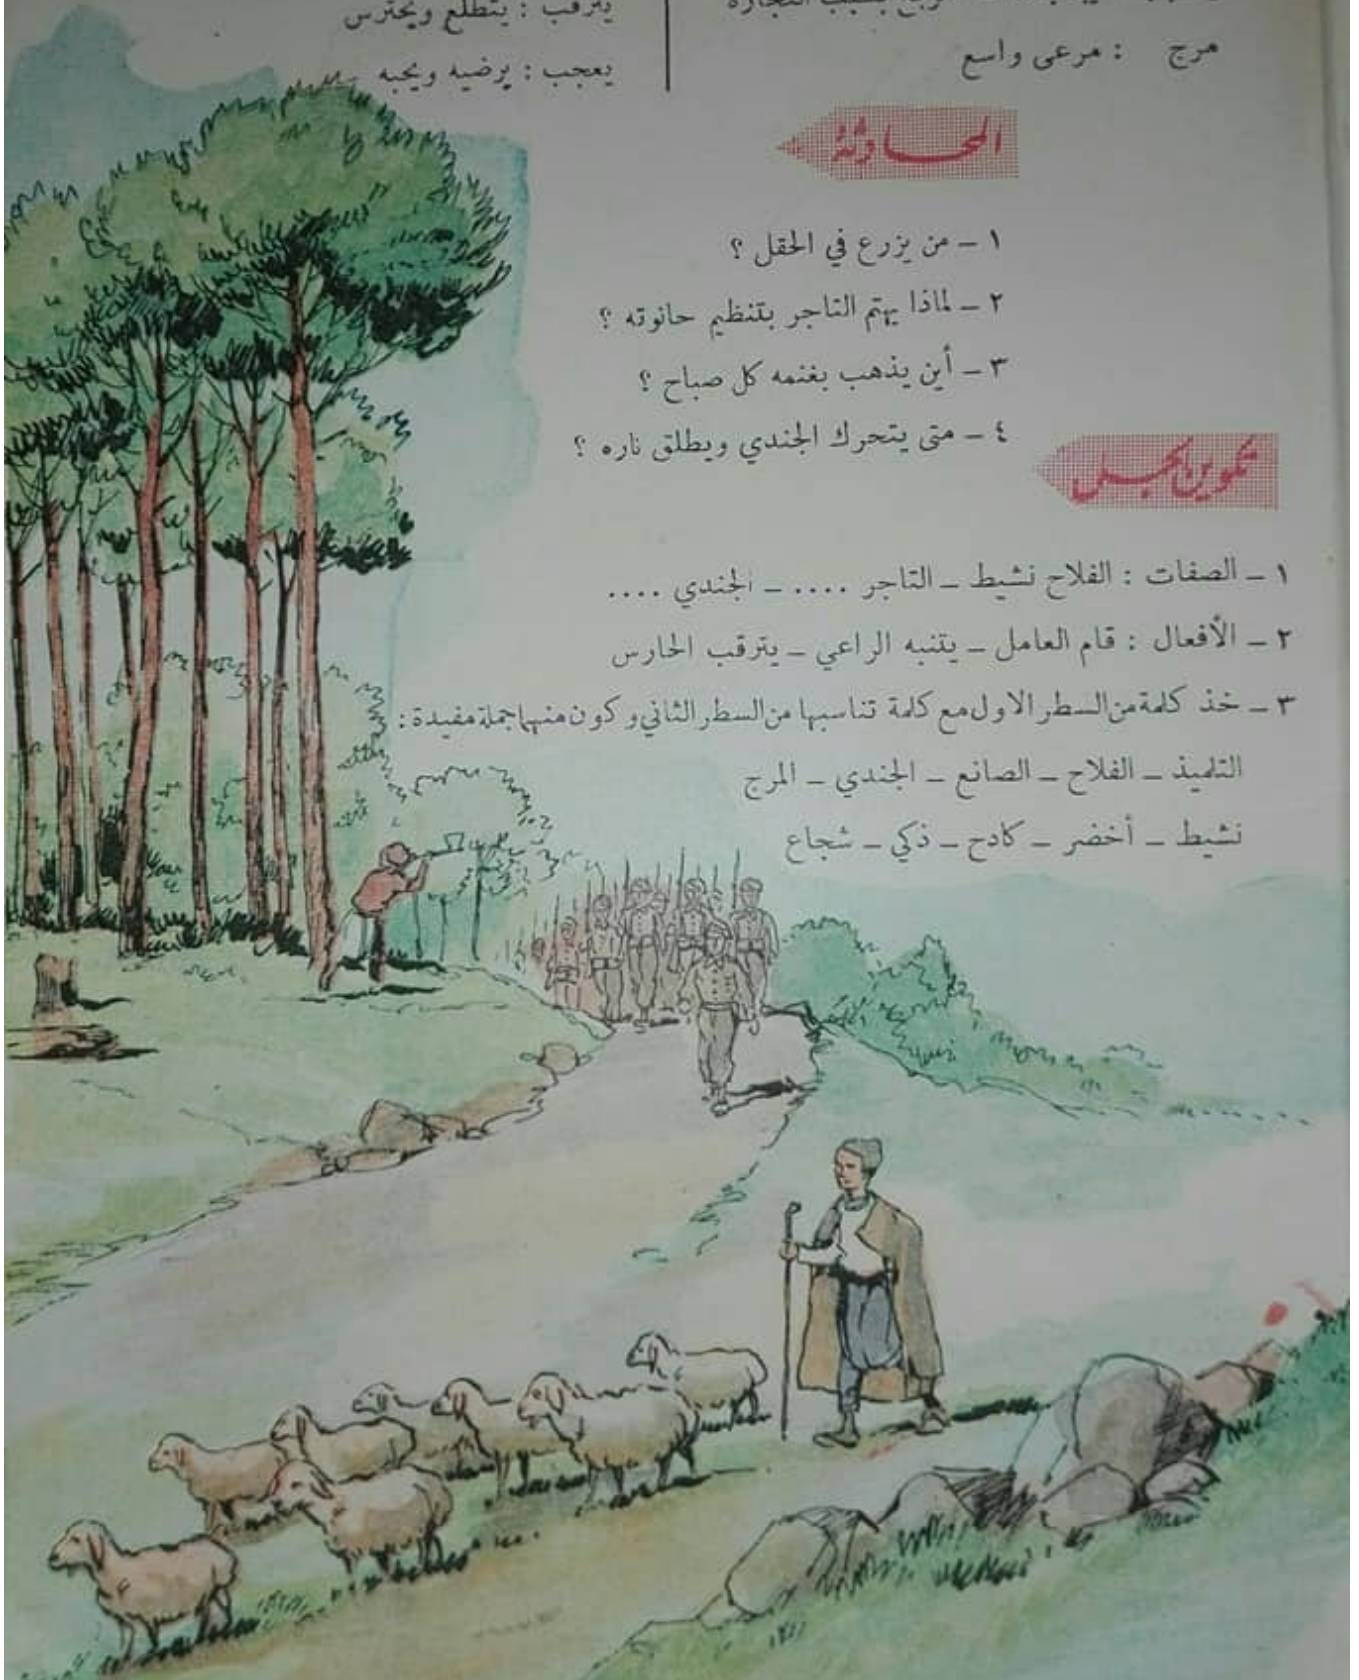 بسبب التجارة
مرج : مرعى واسع
يترقب : يتطلع ويحترس
يعجب : يرضيه ويحبه
المحادثة
١ - من يزرع في الحقل ؟
٢ - لماذا يهتم التاجر بتنظيم حانوته ؟
٣ - أين يذهب بغنمه كل صباح ؟
٤ - متى يتحرك الجندي ويطلق ناره ؟
تكوين الجمل
١ - الصفات : الفلاح نشيط - التاجر .... - الجندي ....
٢ - الأفعال : قام العامل - يتنبه الراعي - يترقب الحارس
٣ - خذ كلمة من السطر الاول مع كلمة تناسبها من السطر الثاني و كون منهما جملة مفيدة :
التلميذ - الفلاح - الصانع - الجندي - المرج
نشيط - أخضر - كادح - ذكي - شجاع